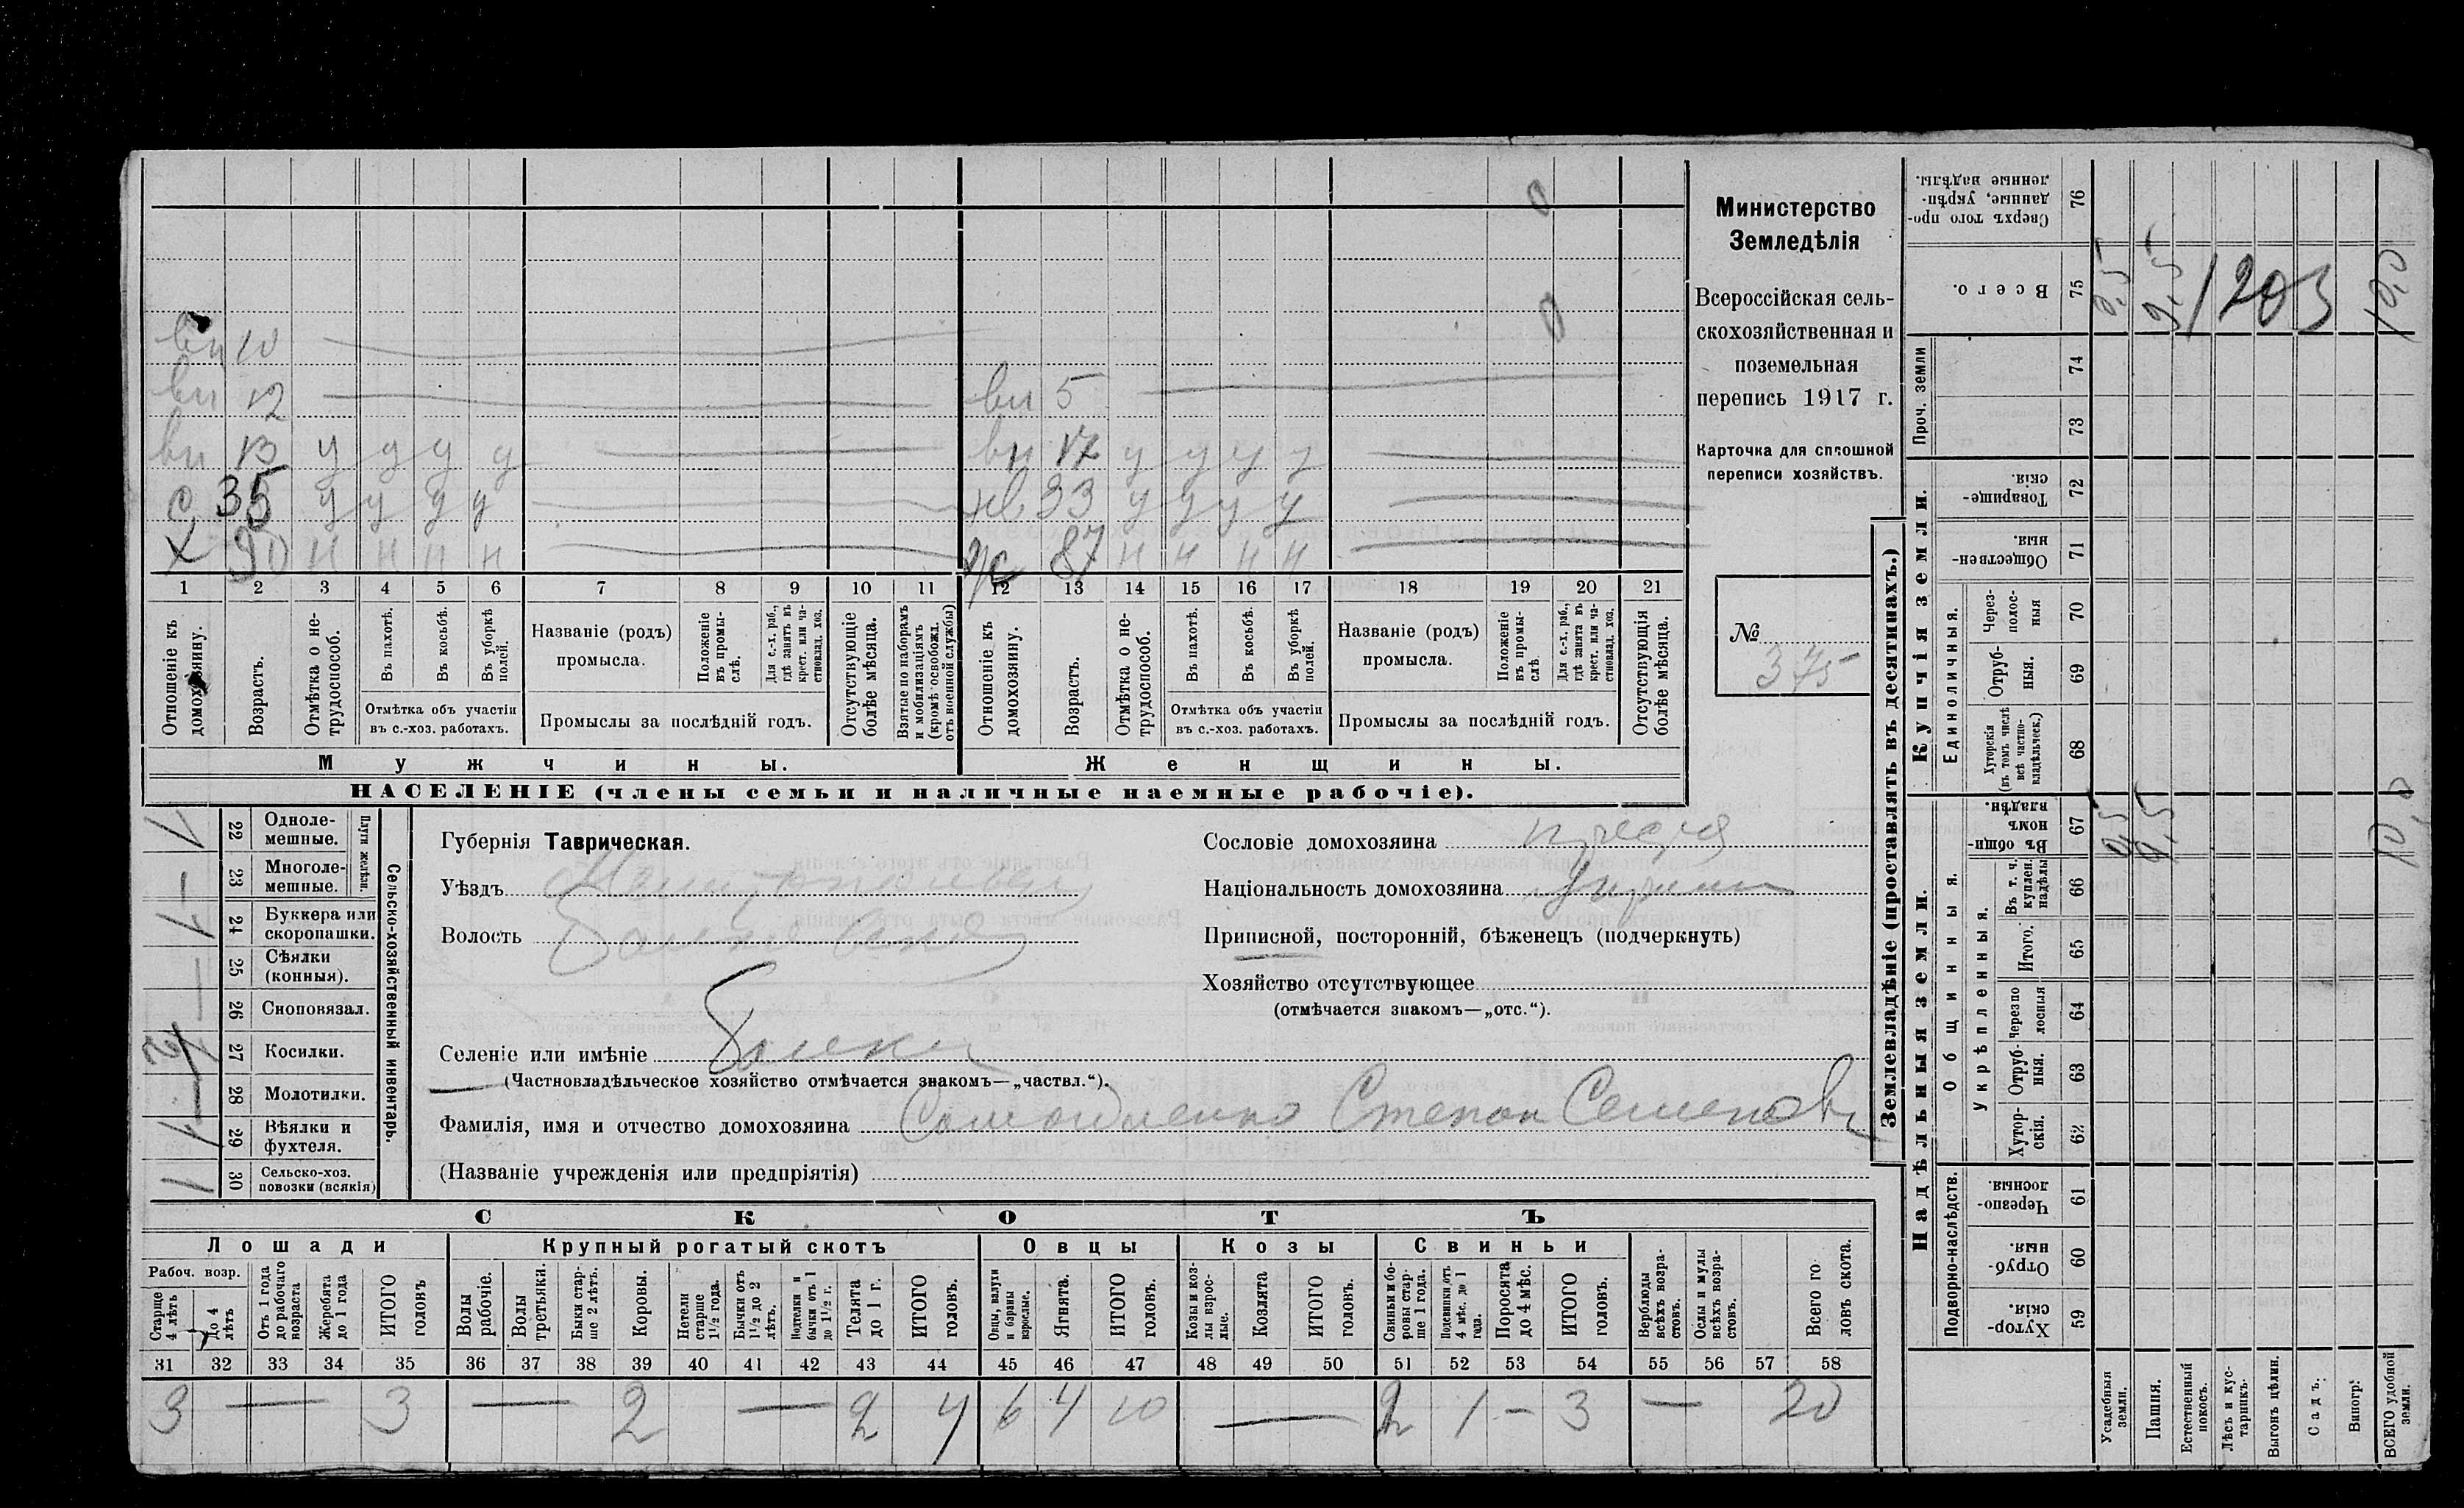 0
0
вн 10
вн 12 вн 5
вн 13 у у у у вн 17 у у у у
с 35 у у у у нв 33 у у у у
х 90 н н н н ж 87 н н н н
1 2 3 4 5 6 7 8 9 10 11 12 13 14 15 16 17 18 19 20 21
Отношеніе къ домохозяину.
Возрастъ.
Отмѣтка о не-
трудоспособ.
Въ пахотѣ.
Въ косьбѣ.
Въ уборкѣ полей.
Отмѣтка объ участіи
въ с.-хоз. работахъ.
Названіе (родъ)
промысла.
Положеніе въ промы-
слѣ.
Для с.-х. раб., гдѣ занятъ въ крест. или ча-
стновлад. хоз.
Промыслы за послѣдній годъ.
Отсутствующіе болѣе мѣсяца.
Взятые по наборамъ и мобилизаціямъ (кромѣ освобожд. отъ военной службы)
Отношеніе къ домохозяину.
Возрастъ.
Отмѣтка о не-
трудоспособ.
Въ пахотѣ.
Въ косьбѣ.
Въ уборкѣ полей.
Отмѣтка объ участіи
въ с.-хоз. работахъ.
Названіе (родъ)
промысла.
Положеніе въ промы-
слѣ.
Для с.-х. раб., гдѣ занята въ крест. или ча-
стновлад. хоз.
Промыслы за послѣдній годъ.
Отсутствующія болѣе мѣсяца.
Мужчины. Женщины.
НАСЕЛЕНІЕ (члены семьи и наличные наемные рабочіе).
Министерство
Земледѣлія
Всероссійская сель-
скохозяйственная и
поземельная
перепись 1917 г.
Карточка для сплошной
переписи хозяйствъ.
№
375
Сельско-хозяйственный инвентарь.
Плуги желѣзн.
22 Однолемешные. 1
23 Многолемешные. —
24 Буккера или скоропашки. 1
25 Сѣялки (конныя). —
26 Сноповязал.
27 Косилки.
28 Молотилки. —
29 Вѣялки и фухтеля. 1
30 Сельско-хоз. повозки (всякія) 1
Губернія Таврическая.
Уѣздъ
Волость
Селеніе или имѣніе
(Частновладѣльческое хозяйство отмѣчается знакомъ—„частвл.“).
Фамилія, имя и отчество домохозяина Степан Семенов
(Названіе учрежденія или предпріятія)
Сословіе домохозяина
Національность домохозяина
Приписной, посторонній, бѣженецъ (подчеркнуть)
Хозяйство отсутствующее
(отмѣчается знакомъ—„отс.“).
СКОТЪ
Лошади Крупный рогатый скотъ Овцы Козы Свиньи
Рабоч. возр.
Старше 4 лѣтъ
До 4 лѣтъ
Отъ 1 года до рабочаго возраста
Жеребята до 1 года
ИТОГО головъ
Волы рабочіе.
Волы третьяки.
Быки стар-
ше 2 лѣтъ.
Коровы.
Нетели старше 1½ года.
Бычки отъ 1½ до 2 лѣтъ.
Подтелки и бычки отъ 1 до 1½ г.
Телята до 1 г.
ИТОГО головъ.
Овцы, валухи и бараны взрослые.
Ягнята.
ИТОГО головъ.
Козы и коз-
лы взрос-
лые.
Козлята
ИТОГО головъ.
Свиньи и бо-
ровы стар-
ше 1 года.
Подсвинки отъ 4 мѣс. до 1 года.
Поросята до 4 мѣс.
ИТОГО головъ.
Верблюды всѣхъ возра-
стовъ.
Ослы и мулы всѣхъ возра-
стовъ.
Всего го
ловъ скота.
31 32 33 34 35 36 37 38 39 40 41 42 43 44 45 46 47 48 49 50 51 52 53 54 55 56 57 58
3 — 3 — 2 — 2 4 6 4 10 — 2 1 – 3 — 20
Землевладѣніе (проставлять въ десятинахъ.)
Купчія земли.
Надѣльныя земли.
Сверхъ того про-
данные, укрѣп-
ленные надѣлы. 76
Всего. 75
9,5 1203
Проч. земли
74
73
Товарище-
скія. 72
Обществен-
ныя. 71
Единоличныя.
Через-
полос-
ныя 70
Отруб-
ныя. 69
Хуторскія (въ томъ числѣ всѣ частно-
владѣльческ.) 68
Общинныя.
Въ общи-
номъ владѣн. 67
9,5 10,0
Укрѣпленныя.
Въ т. ч. куплен. надѣлы 66
Итого. 65
Черезпо
лосныя 64
Отруб-
ныя. 63
Хутор-
скія. 62
Подворно-наслѣдств.
Черезпо-
лосныя. 61
Отруб-
ныя. 60
Хутор-
скія. 59
Усадебныя земли.
Пашня.
Естественный покосъ.
Лѣсъ и кус-
тарникъ.
Выгонъ цѣлин.
Садъ.
Виногр.
ВСЕГО удобной земли.